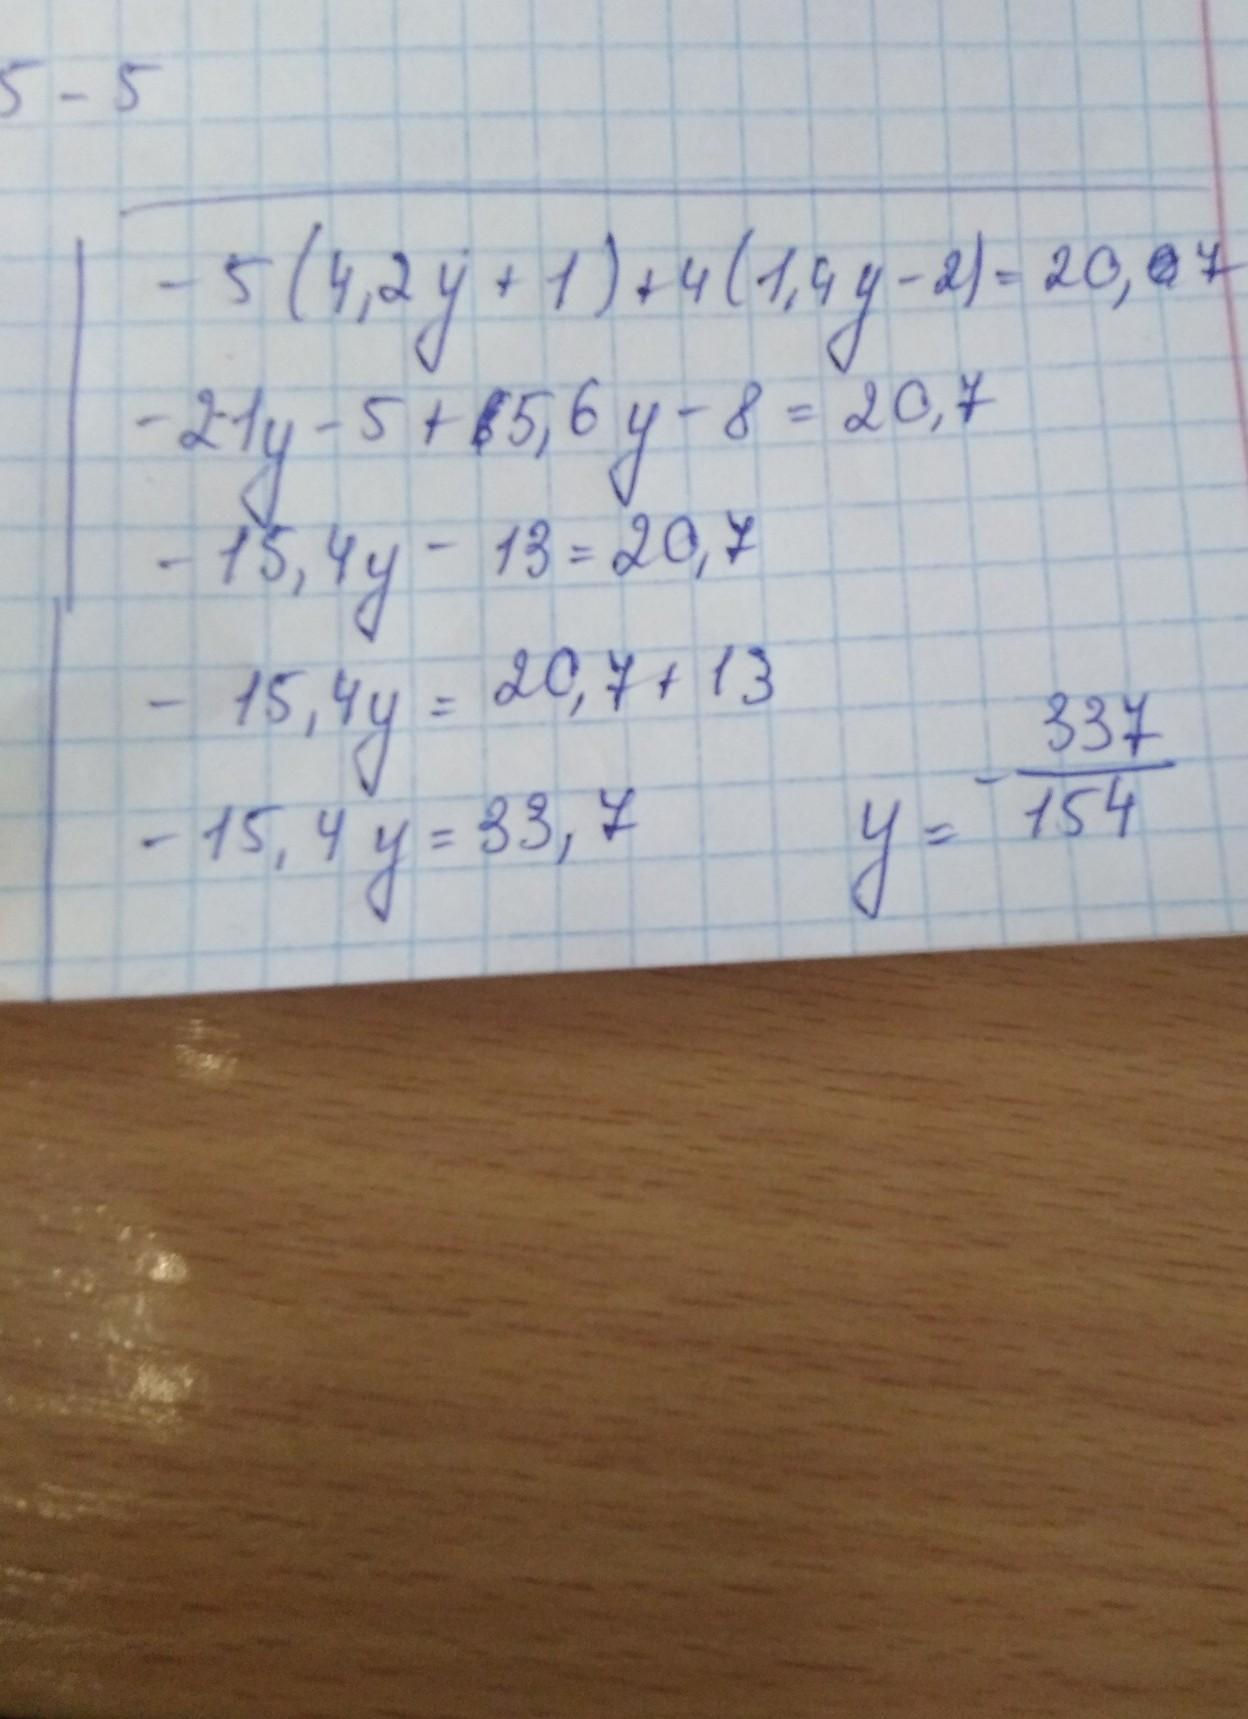 5 - 5
- 5 (4,2y + 1) + 4 (1,4y - 2) = 20,7
- 21y - 5 + 5,6y - 8 = 20,7
- 15,4y - 13 = 20,7
- 15,4y = 20,7 + 13
- 15,4y = 33,7 y = - 337/154